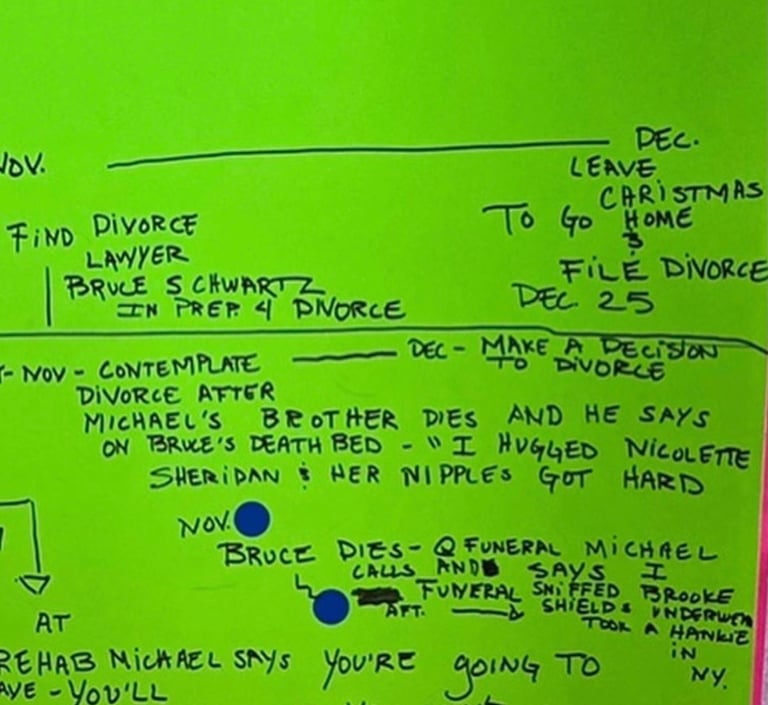 NOV. DEC.
LEAVE
CHRISTMAS
TO GO HOME
&
FIND DIVORCE
LAWYER
FILE DIVORCE
BRUCE SCHWARTZ
DEC. 25
IN PREP. 4 DIVORCE
- NOV - CONTEMPLATE DEC - MAKE A DECISION
TO DIVORCE
DIVORCE AFTER
MICHAEL'S BROTHER DIES AND HE SAYS
ON BRUCE'S DEATH BED - "I HUGGED NICOLETTE
SHERIDAN & HER NIPPLES GOT HARD
NOV.
BRUCE DIES - @ FUNERAL MICHAEL
CALLS AND SAYS I
FUNERAL SNIFFED BROOKE
AFT. SHIELDS UNDERWEA
TOOK A HANKIE
IN
NY.
AT
REHAB MICHAEL SAYS YOU'RE GOING TO
AVE - YOU'LL